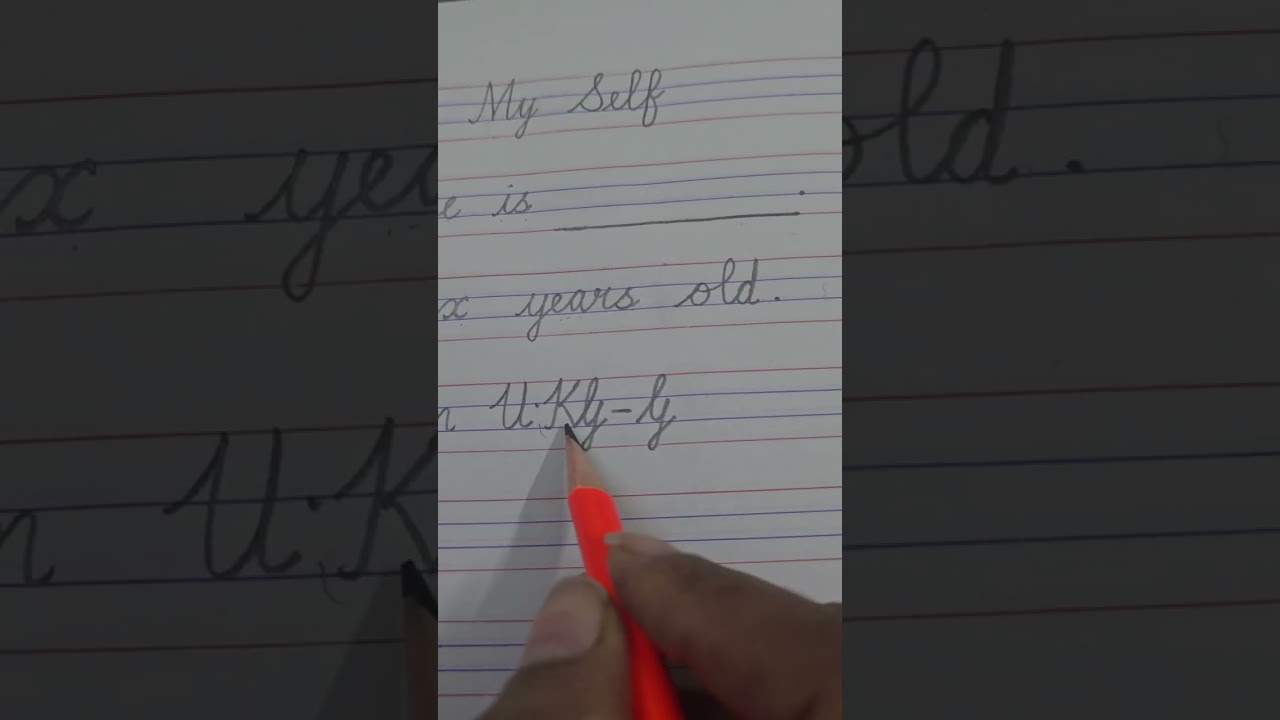 My Self
e is ________.
x years old.
n U.KG-G